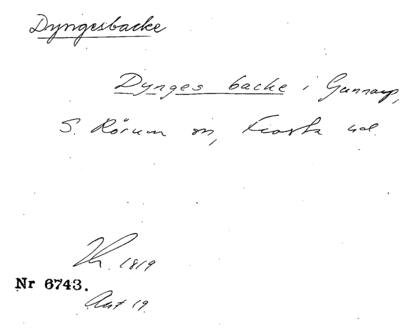 Dyngesbacke
Dynges backe i Gunnarp,
S. Rörum sn, Frosta hd.
1819
Nr 6743.
Akt 19.